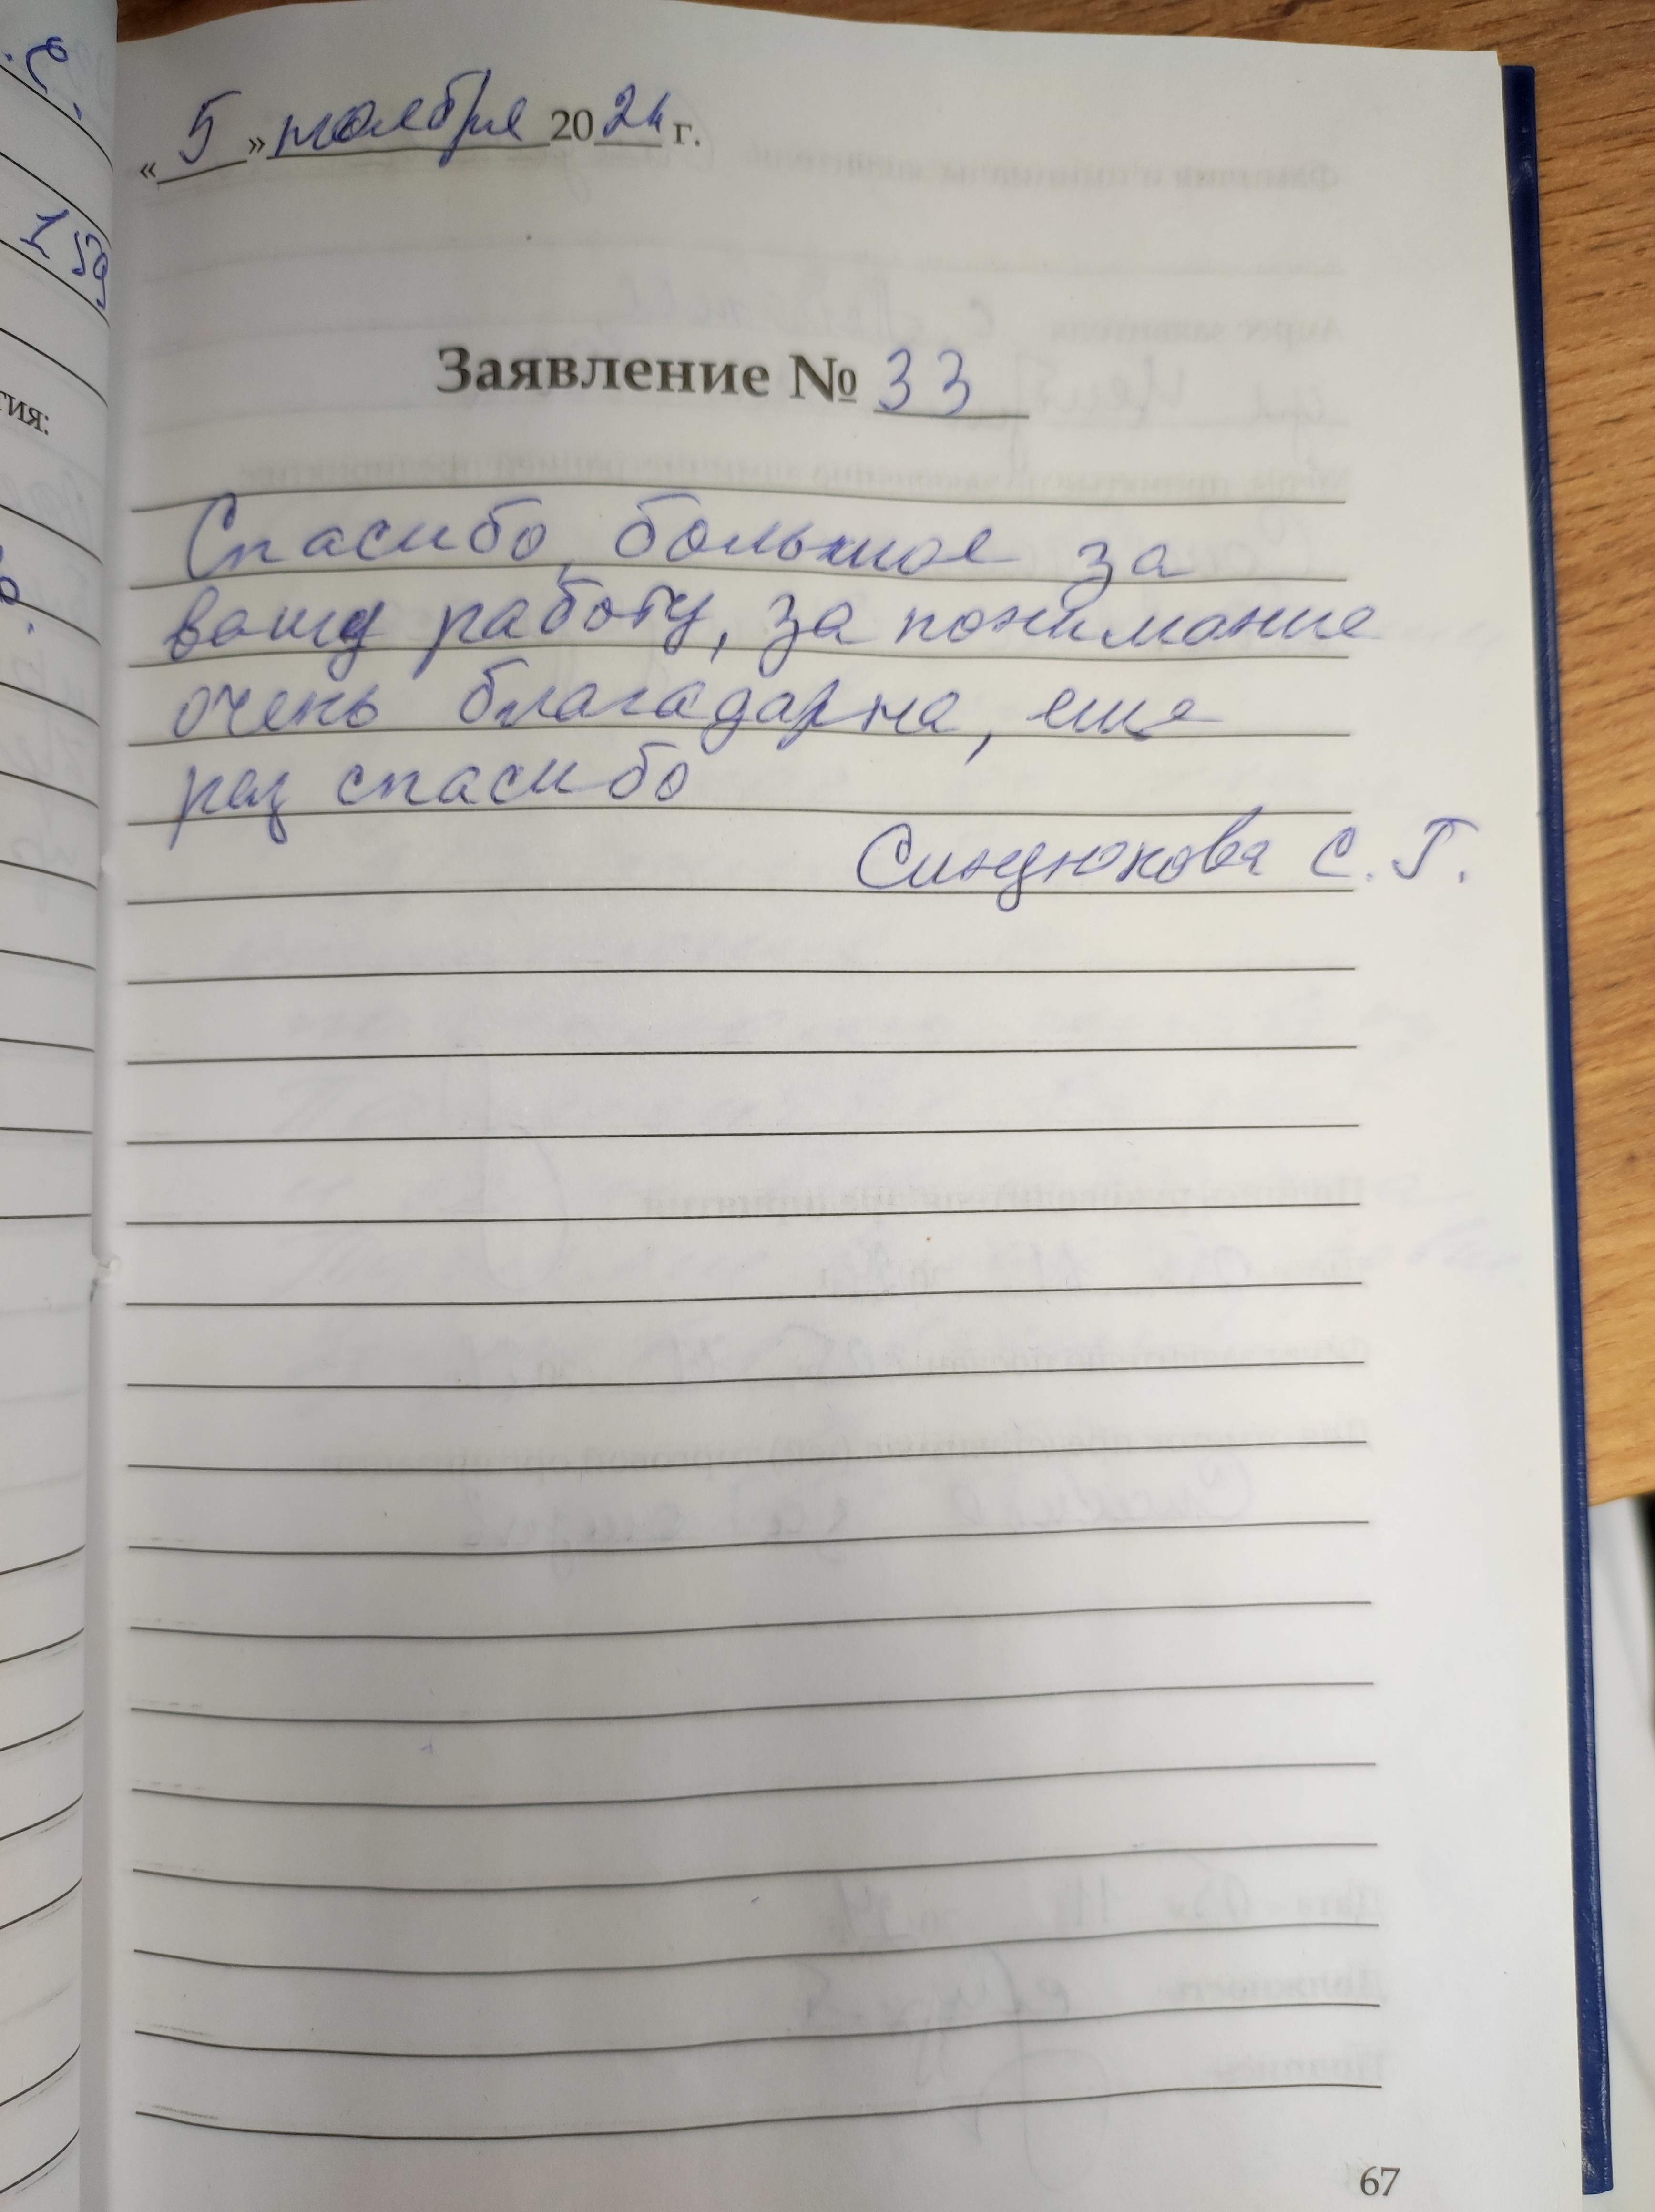 «5» ноября 2024 г.
Заявление № 33
Спасибо большое за
вашу работу, за понимание
очень благадарна, еще
раз спасибо
Синдюкова С. Г.
159
тия:
67